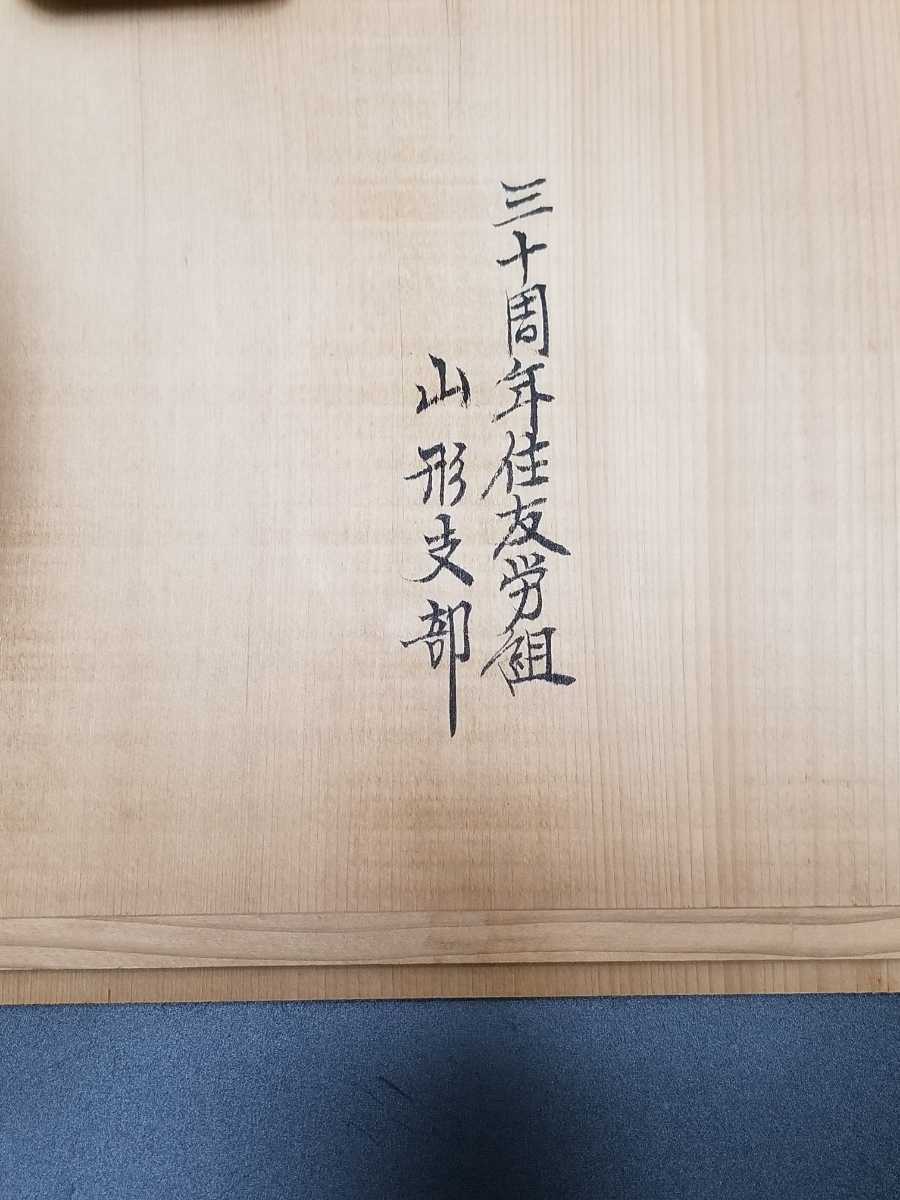 三十周年住友労組
山形支部